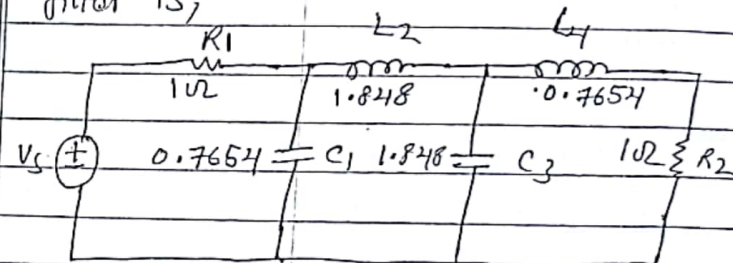 is,
R1 L2 L4
1Ω 1.848 0.7654
Vs + 0.7654 C1 1.848 C3 1Ω R2